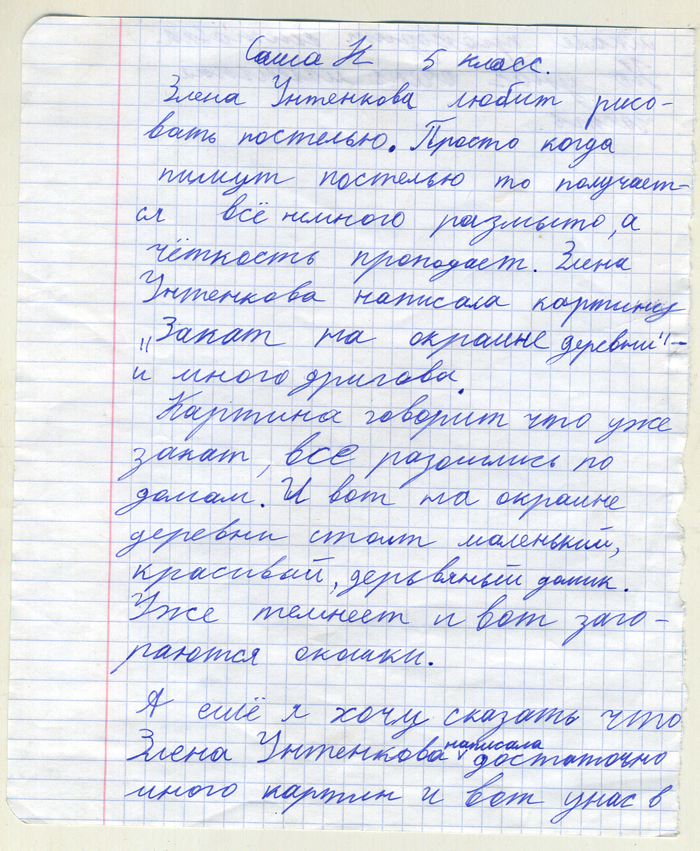 Саша К 5 класс.
Элена Унтенкова любит рисо-
вать постелью. Просто когда
пишут постелью то получает-
ся всё немного размыто, а
чёткость проподает. Элена
Унтенкова написала картину
„Закат на окраине деревни"-
и много дригова.
Картина говорит что уже
закат, все разошлись по
домам. И вот на окраине
деревни стоит маленький,
красивый, дерьвяный домик.
Уже темнеет и вот заго-
раются окошки.
А ещё я хочу сказать что
Элена Унтенкова написала достаточно
много картин и вот унас в